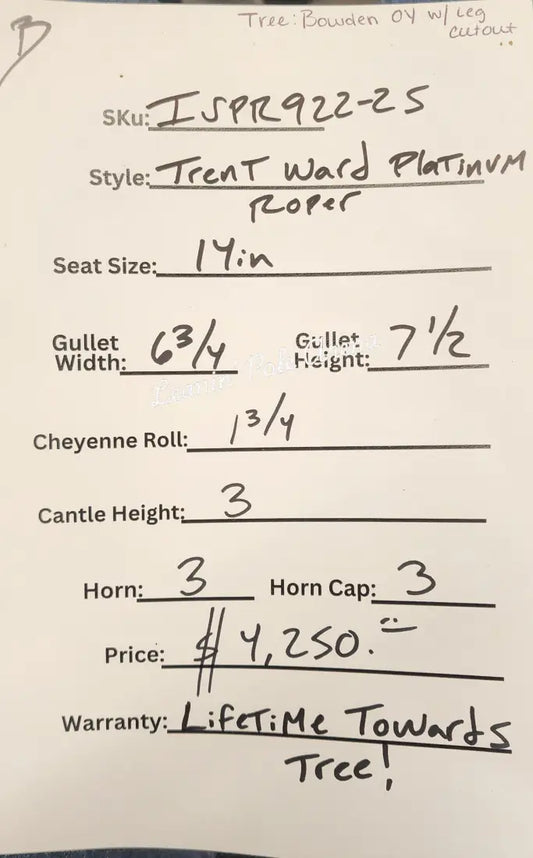 Tree: Bowden OY w/ Leg
cutout
B
SKu: ISPR922-25
Style: TrenT Ward PlaTinuM
Roper
Seat Size: 14in
Gullet Width: 6 3/4 Gullet Height: 7 1/2
Cheyenne Roll: 1 3/4
Cantle Height: 3
Horn: 3 Horn Cap: 3
Price: $ 4,250.=
Warranty: LifeTiMe Towards
Tree!